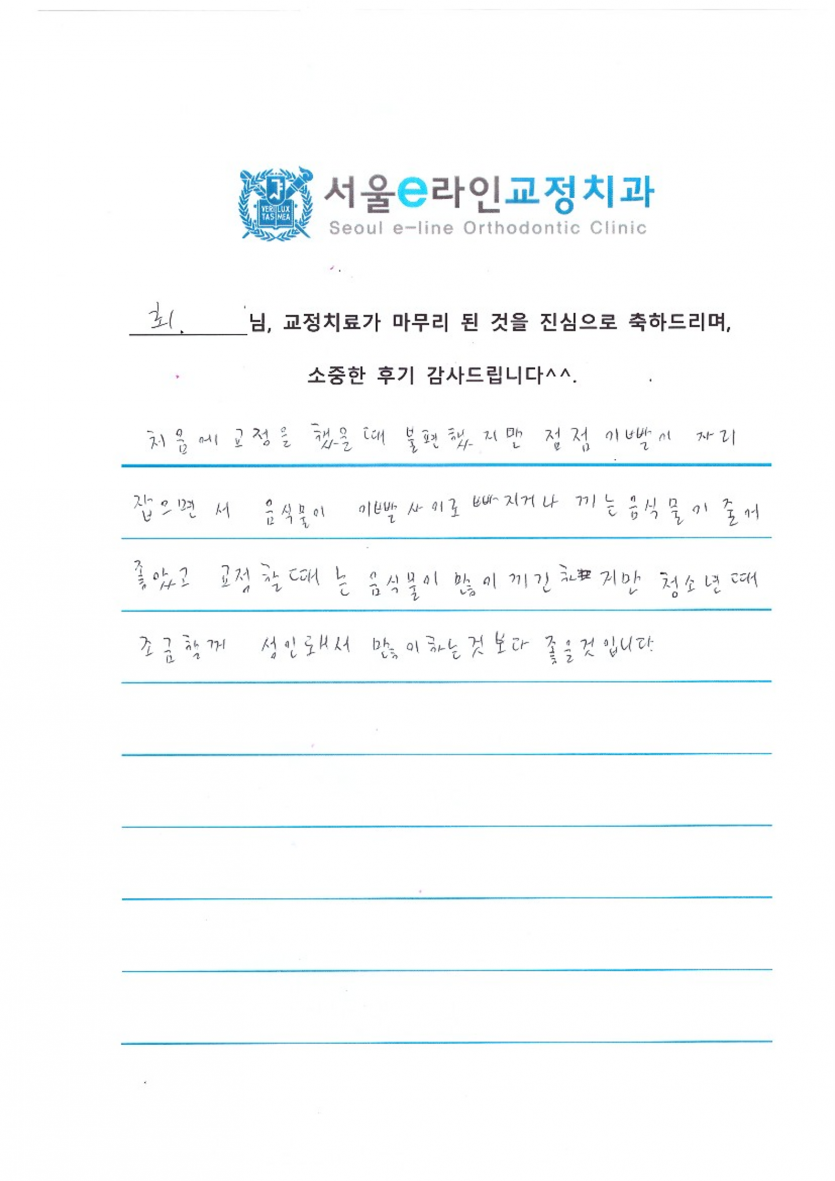 VERI LUX
TAS MEA
서울e라인교정치과
Seoul e-line Orthodontic Clinic
최. 님, 교정치료가 마무리 된 것을 진심으로 축하드리며,
소중한 후기 감사드립니다^^.
처음에 교정을 했을때 불편했지만 점점 이빨이 자리
잡으면 서 음식물이 이빨사이로 빠지거나 끼는음식물이 줄거
좋았고 교정할때는 음식물이 많이끼긴 하 지만 청소년때
조금할께 성인돼서 많이하는것보다 좋을것입니다.